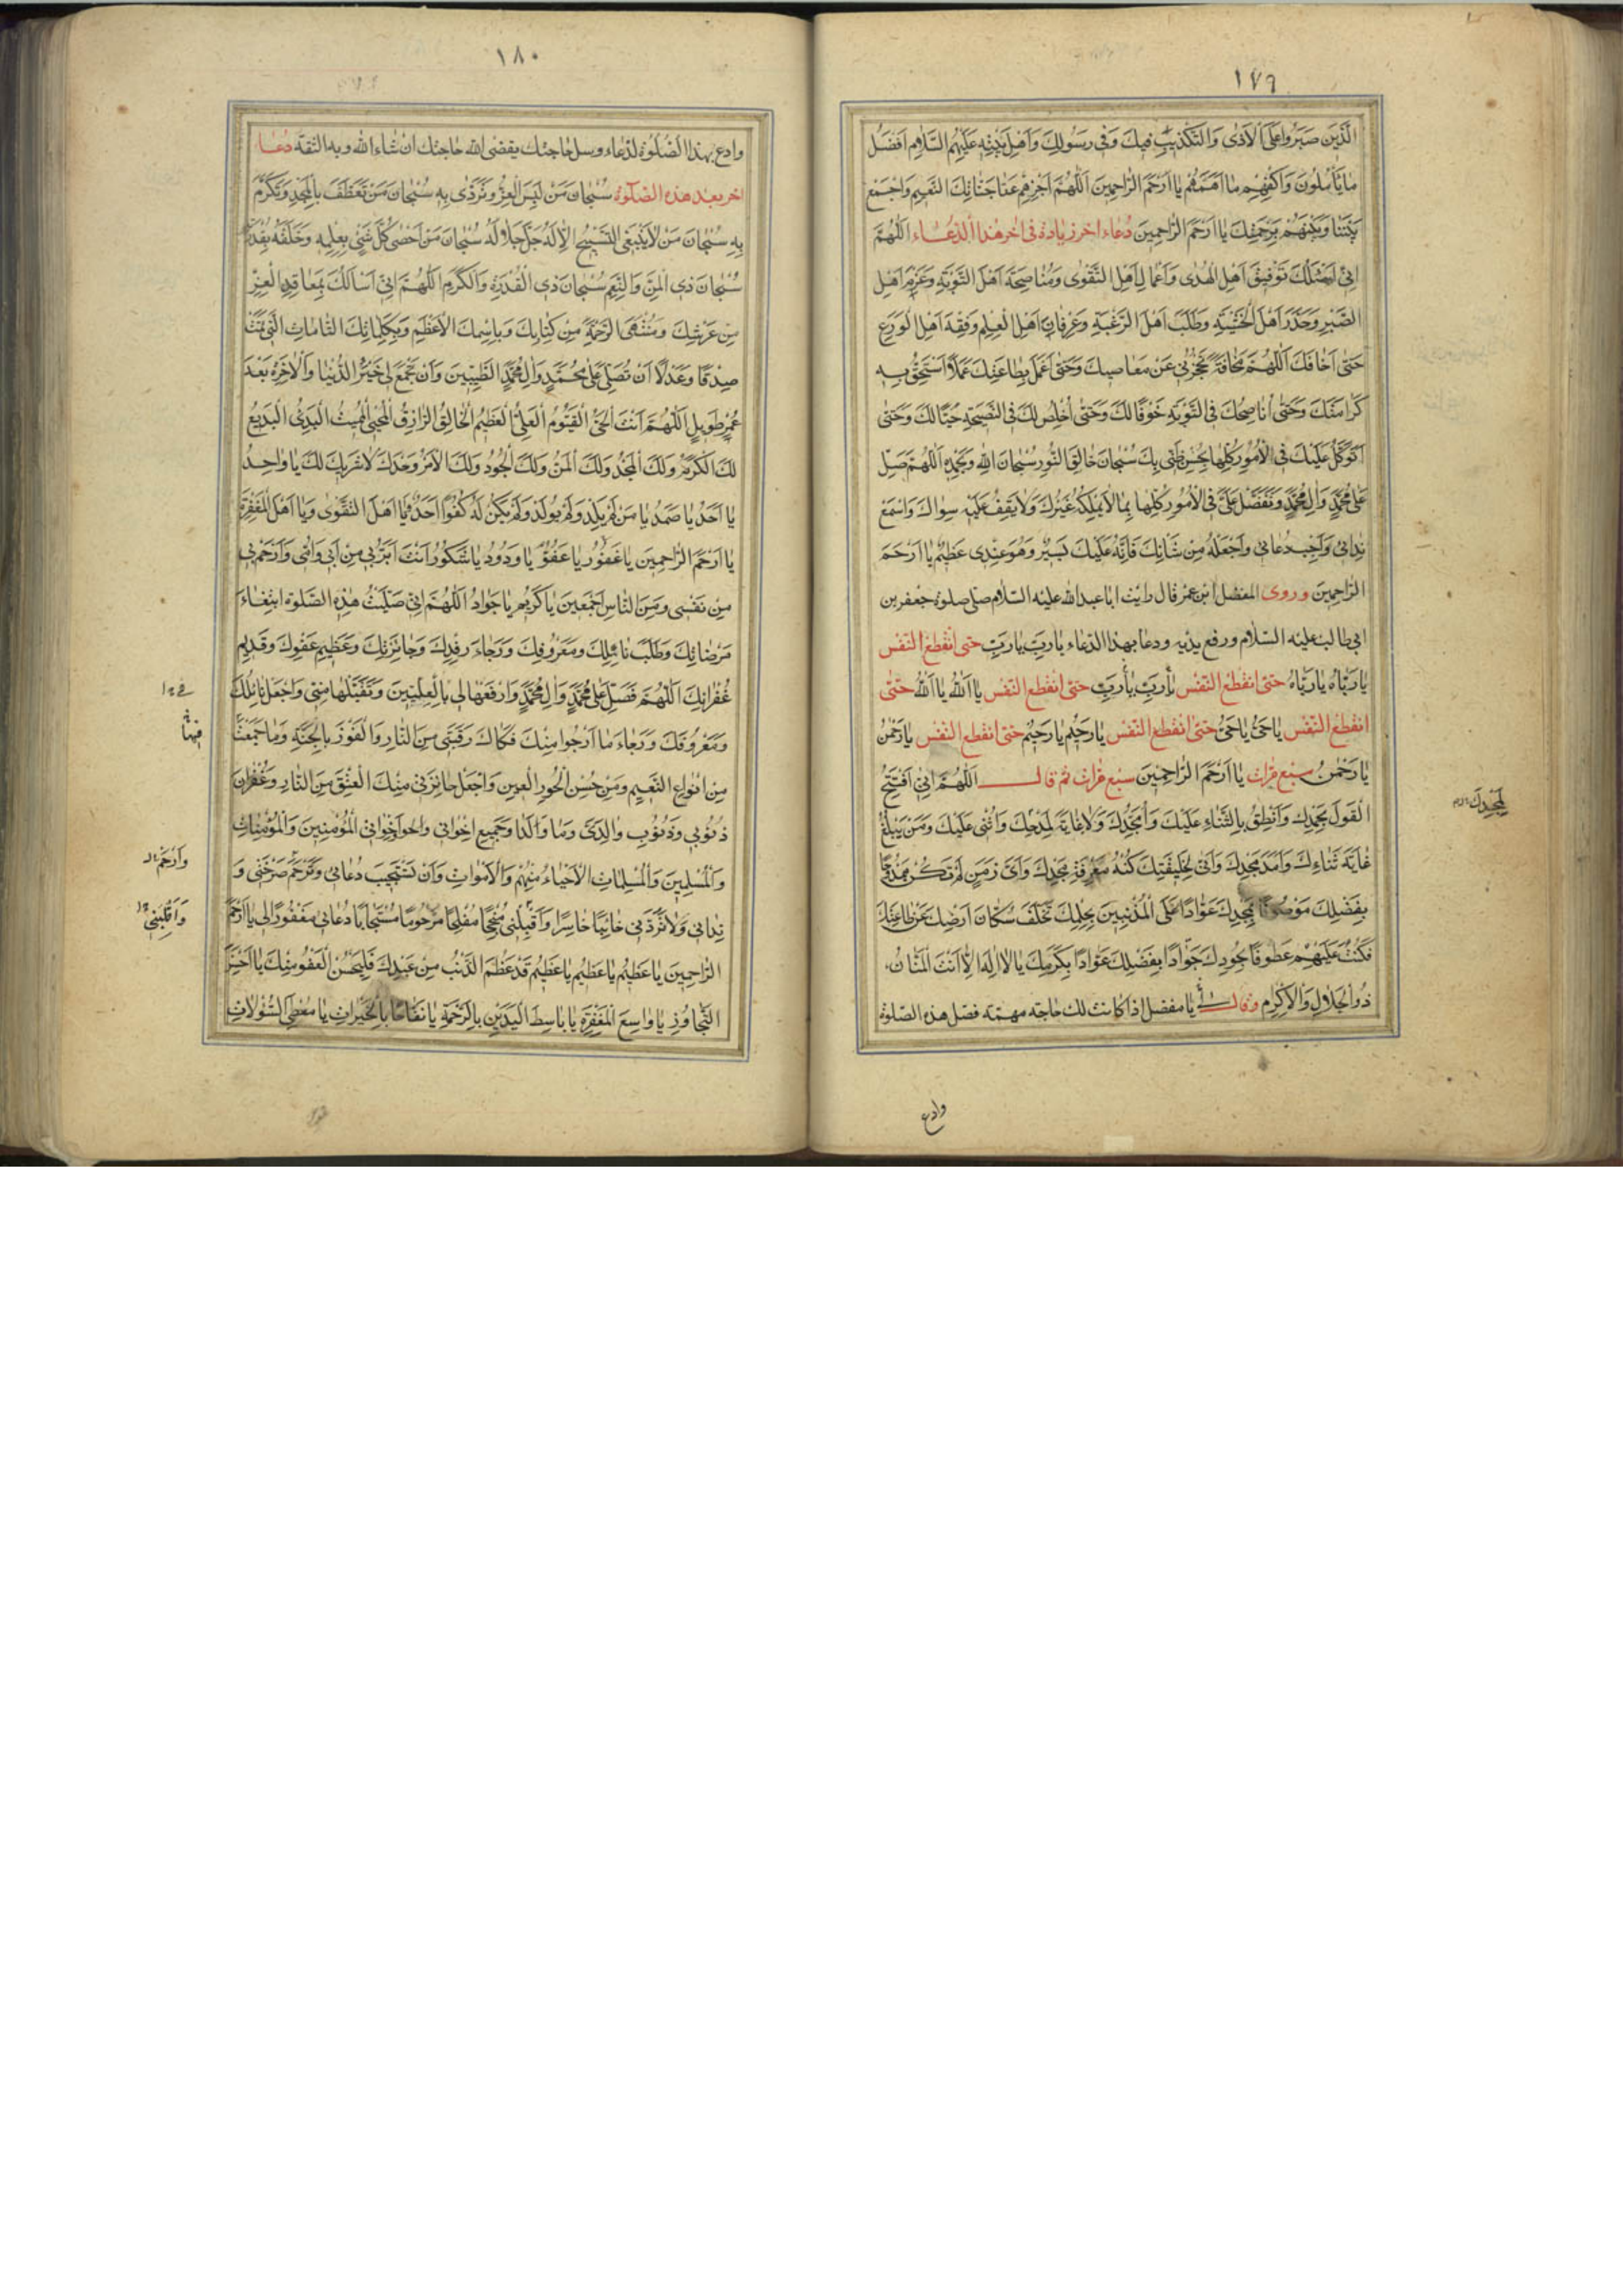 ١٧٩
الَّذِينَ صَبَرُوا عَلَى الْأَذى وَالتَّكْذيبِ فيكَ وَفى رَسُولِكَ وَاَهْلِ بَيْتِهِ عَلَيْهِمُ السَّلامِ اَفْضَلَ
ما يَأْمَلُونَ وَاكْفِهِمْ ما اَهَمَّهُمْ يا اَرْحَمَ الرَّاحِمِينَ اَللّهُمَّ اجْزِهِمْ عَنّا جَنّاتِكَ النَّعيمِ وَاجْمَعْ
بَيْنَنا وَبَيْنَهُمْ بِرَحْمَتِكَ يا اَرْحَمَ الرّاحِمِينَ دُعاء اخر زيادة فى اخر هذا الدّعاء اَللّهُمَّ
اِنّى اَسْئَلُكَ تَوْفِيقَ اَهْلِ الْهُدى وَاَعْمالِ اَهْلِ التَّقْوى وَمُناصِحَةَ اَهْلِ التَّوْبَةِ وَعَزْمَ اَهْلِ
الصَّبْرِ وَحَذَرَ اَهْلِ الْخَشْيَةِ وَطَلَبَ اَهْلِ الرَّغْبَةِ وَعِرْفانَ اَهْلِ الْعِلْمِ وَفِقْهَ اَهْلِ الْوَرَعِ
حَتّى اَخافَكَ اَللّهُمَّ مَخافَةً تَحْجُزُنى عَنْ مَعاصيكَ وَحَتّى اَعْمَلَ بِطاعَتِكَ عَمَلاً اَسْتَحِقُّ بِه
كَرامَتَكَ وَحَتّى اُناصِحَكَ فِى التَّوْبَةِ خَوْفًا لَكَ وَحَتّى اُخْلِصَ لَكَ فِى النَّصيحَةِ حُبًّا لَكَ وَحَتّى
اَتَوَكَّلَ عَلَيْكَ فِى الْاُمُورِ كُلِّها بِحُسْنِ ظَنّى بِكَ سُبْحانَ خالِقِ النُّورِ سُبْحانَ اللهِ وَبِحَمْدِهِ اَللّهُمَّ صَلِّ
عَلى مُحَمَّدٍ وَالِ مُحَمَّدٍ وَتَفَضَّلْ عَلَىَّ فِى الْاُمُورِ كُلِّها بِما لا يَمْلِكُهُ غَيْرُكَ وَلا يَقِفُ عَلَيْهِ سِواكَ وَاسْمَعْ
نِدائى وَاَجِبْ دُعائى وَاجْعَلْهُ مِنْ شَانِكَ فَاِنَّهُ عَلَيْكَ يَسيرٌ وَهُوَ عِنْدى عَظيمٌ يا اَرْحَمَ
الرّاحِمينَ وروى المفضل ابن عمر قال رايت ابا عبد الله عليه السّلام صلّى صلوة جعفر بن
ابى طالب عليه السّلام ورفع يديه ودعا بهذا الدّعاء يا رَبِّ يا رَبِّ حتى انقطع النّفس
يا رَبّاهُ يا رَبّاهُ حتّى انقطع النّفس يا رَبِّ يا رَبِّ حتّى انقطع النّفس يا اَللهُ يا اَللهُ حتّى
انقطع النّفس يا حَىُّ يا حَىُّ حتّى انقطع النّفس يا رَحيمُ يا رَحيمُ حتّى انقطع النّفس يا رَحْمنُ
يا رَحْمنُ سبع مرّات يا اَرْحَمَ الرّاحِمينَ سبع مرّات ثمّ قال اَللّهُمَّ اِنّى اَفْتَتِحُ
الْقَوْلَ بِحَمْدِكَ وَاَنْطِقُ بِالثَّناءِ عَلَيْكَ وَاُمَجِّدُكَ وَلا غايَةَ لِمَدْحِكَ وَاُثْنى عَلَيْكَ وَمَنْ يَبْلُغُ
غايَةَ ثَناءِكَ وَاَمَدَ مَجْدِكَ وَاَنّى لِخَليقَتِكَ كُنْهُ مَعْرِفَةِ مَجْدِكَ وَاَىَّ زَمَنٍ لَمْ تَكُنْ مَمْدُوحًا
بِفَضْلِكَ مَوْصُوفًا بِمَجْدِكَ عَوّادًا عَلَى الْمُذْنِبينَ بِحِلْمِكَ تَخَلَّفَ سُكّانُ اَرْضِكَ عَنْ طاعَتِكَ
فَكُنْتَ عَلَيْهِمْ عَطُوفًا بِجُودِكَ جَوادًا بِفَضْلِكَ عَوّادًا بِكَرَمِكَ يا لا اِلهَ اِلّا اَنْتَ الْمَنّانُ
ذُو الْجَلالِ وَالْاِكْرامِ وقال لى يا مفضل اذا كانت لك حاجة مهمّة فصلّ هذه الصّلوة
لِمَجْدِكَ
وادع
١٨٠
وادع بهذا الصّلوة لدّعاء وسل حاجتك يقضى الله حاجتك ان شاء الله وبه الثقة دعاء
اخر بعد هذه الصّلوة سُبْحانَ مَنْ لَبِسَ الْعِزَّ وَتَرَدّى بِهِ سُبْحانَ مَنْ تَعَطَّفَ بِالْمَجْدِ وَتَكَرَّمَ
بِهِ سُبْحانَ مَنْ لا يَنْبَغِى التَّسْبيحُ اِلّا لَهُ جَلَّ جَلالُهُ سُبْحانَ مَنْ اَحْصى كُلَّ شَىْءٍ بِعِلْمِهِ وَخَلَقَهُ بِقُدْرَتِهِ
سُبْحانَ ذِى الْمَنِّ وَالنِّعَمِ سُبْحانَ ذِى الْقُدْرَةِ وَالْكَرَمِ اَللّهُمَّ اِنّى اَسْاَلُكَ بِمَعاقِدِ الْعِزِّ
مِنْ عَرْشِكَ وَمُنْتَهَى الرَّحْمَةِ مِنْ كِتابِكَ وَبِاسْمِكَ الْاَعْظَمِ وَبِكَلِماتِكَ التّامّاتِ الَّتى تَمَّتْ
صِدْقًا وَعَدْلاً اَنْ تُصَلِّىَ عَلى مُحَمَّدٍ وَالِ مُحَمَّدٍ الطَّيِّبينَ وَاَنْ تَجْمَعَ لى خَيْرَ الدُّنْيا وَالْاخِرَةِ بَعْدَ
عُمْرٍ طَويلٍ اَللّهُمَّ اَنْتَ الْحَىُّ الْقَيُّومُ الْعَلِىُّ الْعَظيمُ الْخالِقُ الرّازِقُ الْمُحْيِى الْمُميتُ الْبَدِىُّ الْبَديعُ
لَكَ الْكَرَمُ وَلَكَ الْمَجْدُ وَلَكَ الْمَنُّ وَلَكَ الْجُودُ وَلَكَ الْاَمْرُ وَحْدَكَ لا شَريكَ لَكَ يا واحِدُ
يا اَحَدُ يا صَمَدُ يا مَنْ لَمْ يَلِدْ وَلَمْ يُولَدْ وَلَمْ يَكُنْ لَهُ كُفُوًا اَحَدٌ يا اَهْلَ التَّقْوى وَيا اَهْلَ الْمَغْفِرَةِ
يا اَرْحَمَ الرّاحِمينَ يا غَفُورُ يا عَفُوُّ يا وَدُودُ يا شَكُورُ اَنْتَ اَبَرُّ بى مِنْ اَبى وَاُمّى وَاَرْحَمُ بى
مِنْ نَفْسى وَمِنَ النّاسِ اَجْمَعينَ يا كَريمُ يا جَوادُ اَللّهُمَّ اِنّى صَلَّيْتُ هذِهِ الصَّلوةَ ابْتِغاءَ
مَرْضاتِكَ وَطَلَبَ نائِلِكَ وَمَعْرُوفِكَ وَرَجاءَ رِفْدِكَ وَجائِزَتِكَ وَعَظيمِ عَفْوِكَ وَقَديمِ
غُفْرانِكَ اَللّهُمَّ فَصَلِّ عَلى مُحَمَّدٍ وَالِ مُحَمَّدٍ وَارْفَعْها لى بِالْعِلِّيّينَ وَتَقَبَّلْها مِنّى وَاجْعَلْ نائِلَكَ
وَمَعْرُوفَكَ وَرَجاءَ ما اَرْجُوا مِنْكَ فَكاكَ رَقَبَتى مِنَ النّارِ وَالْفَوْزَ بِالْجَنَّةِ وَما جَمَعْتَ
مِنْ اَنْواعِ النَّعيمِ وَمِنْ حُسْنِ الْحُورِ الْعينِ وَاجْعَلْ جائِزَتى مِنْكَ الْعِتْقَ مِنَ النّارِ وَغُفْرانَ
ذُنُوبى وَذُنُوبِ والِدَىَّ وَما وَلَدا وَجَميعِ اِخْوانى وَاَخَواتى الْمُؤْمِنينَ وَالْمُؤْمِناتِ
وَالْمُسْلِمينَ وَالْمُسْلِماتِ الْاَحْياءِ مِنْهُمْ وَالْاَمْواتِ وَاَنْ تَسْتَجيبَ دُعائى وَتَرْحَمَ صَرْخَتى وَ
نِدائى وَلا تَرُدَّنى خائِبًا خاسِرًا وَاقْلِبْنى مُنْجِحًا مُفْلِحًا مَرْحُومًا مُسْتَجابًا دُعائى مَغْفُورًا لى يا اَرْحَمَ
الرّاحِمينَ يا عَظيمُ يا عَظيمُ يا عَظيمُ قَدْ عَظُمَ الذَّنْبُ مِنْ عَبْدِكَ فَلْيَحْسُنِ الْعَفْوُ مِنْكَ يا حَسَنَ
التَّجاوُزِ يا واسِعَ الْمَغْفِرَةِ يا باسِطَ الْيَدَيْنِ بِالرَّحْمَةِ يا نَفّاحًا بِالْخَيْراتِ يا مُعْطِىَ السُّؤُلاتِ
فيها
وَارْحَمْ
وَاقْلِبْنى